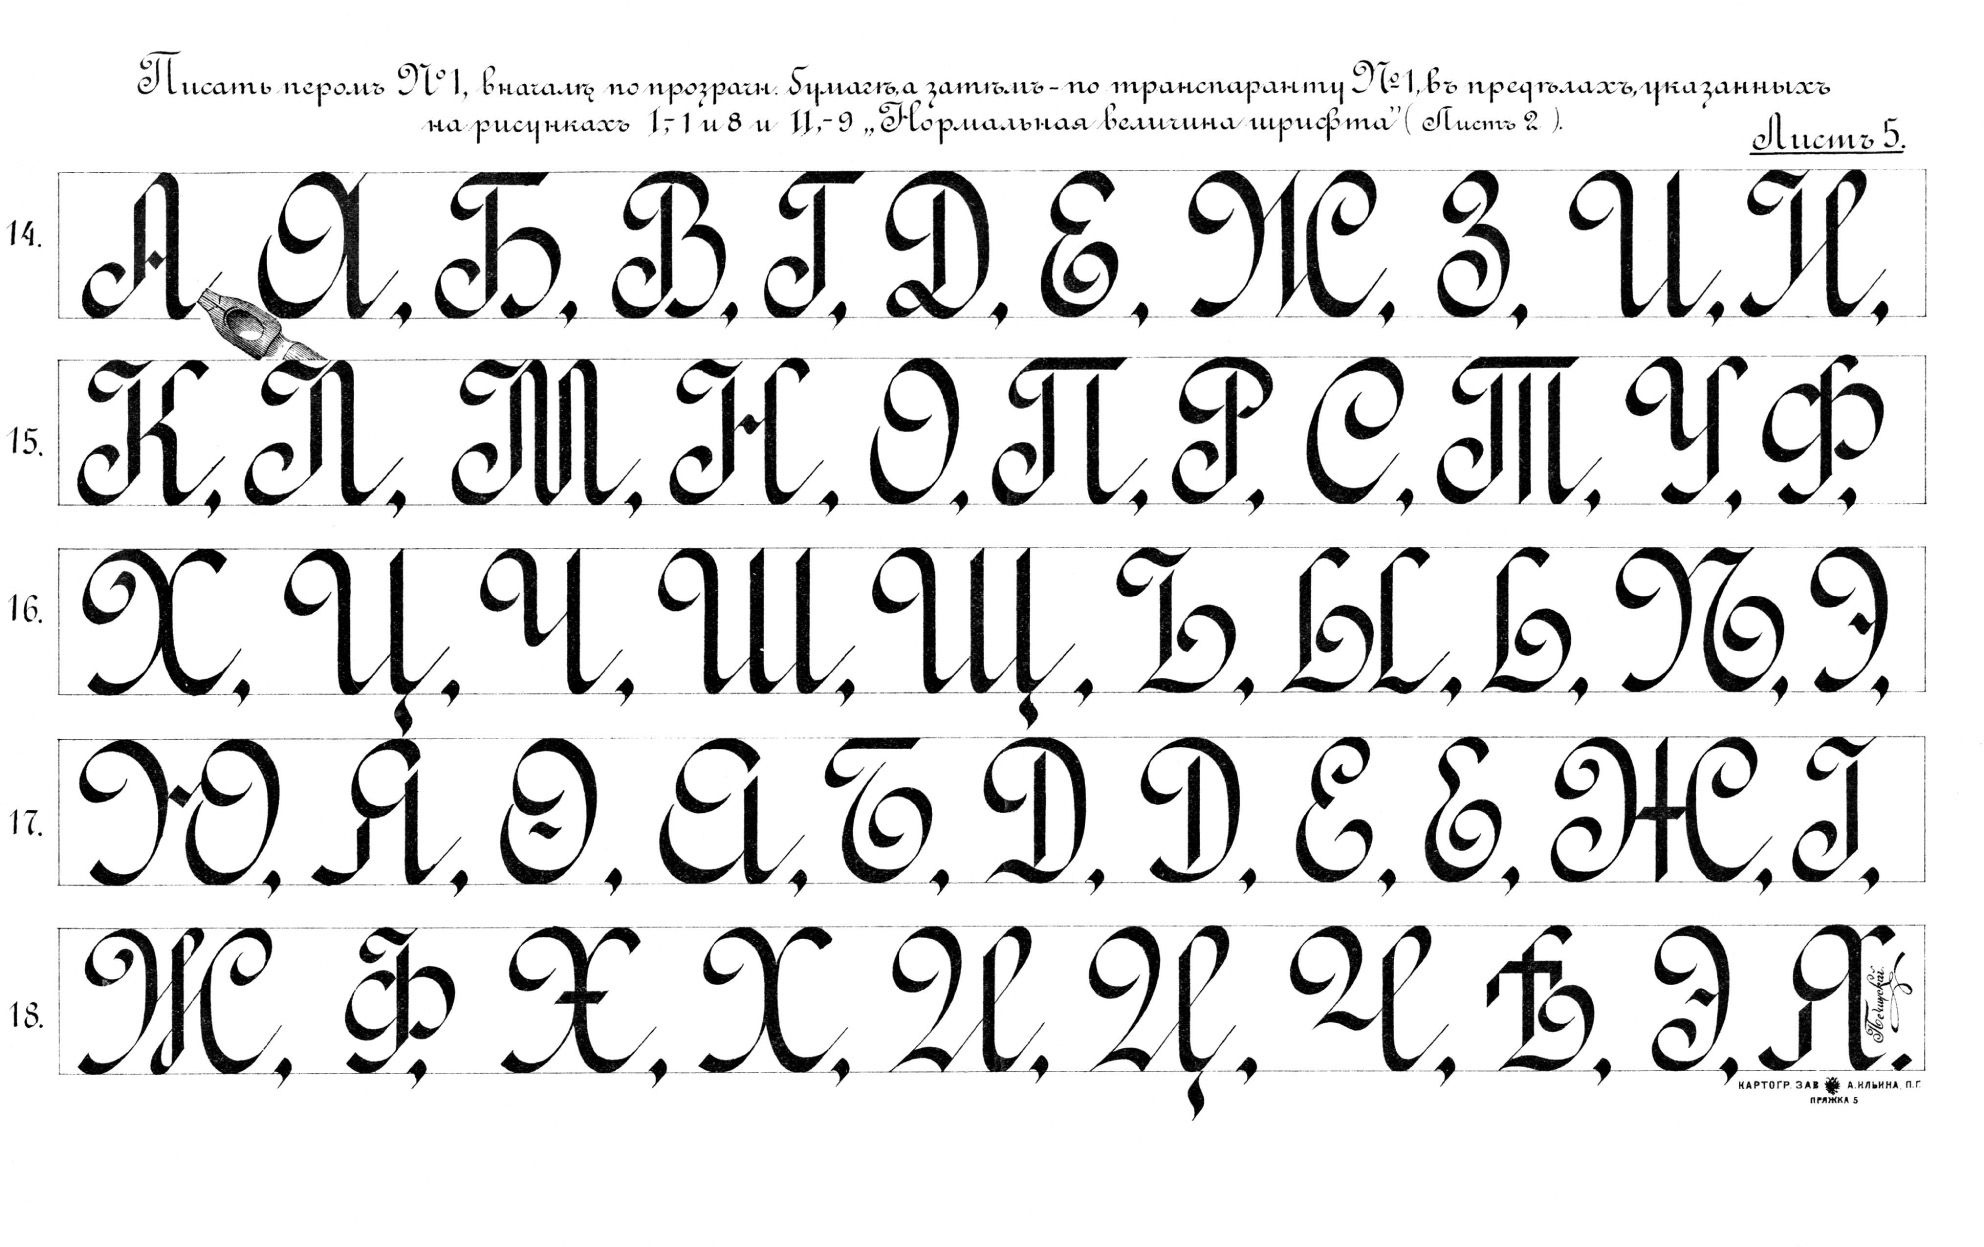 Писать перомъ №1, вначалѣ по прозрачн. бумагѣ, а затѣмъ - по транспаранту №1, въ предѣлахъ, указанныхъ
на рисункахъ 1,-1 и 8 и 11,-9 „Нормальная величина шрифта" ( Листъ 2 ).
Листъ 5.
14. А А, Б, В, Г, Д, Е, Ж, З, И, И,
15. К, Л, М, Н, О, П, Р, С, Т, У, Ф,
16. Х, Ц, Ч, Ш, Щ, Ъ, Ы, Ь, Ѣ, Э,
17. Ю, Я, Ѳ, А, Б, Д, Д, Е, Е, Ж, І,
18. Ж, Ф, Х, Х, И, Ц, Ч, Ѣ, Э, Я.
КАРТОГР. ЗАВ А. ИЛЬИНА, П.Г.
ПРЯЖКА 5